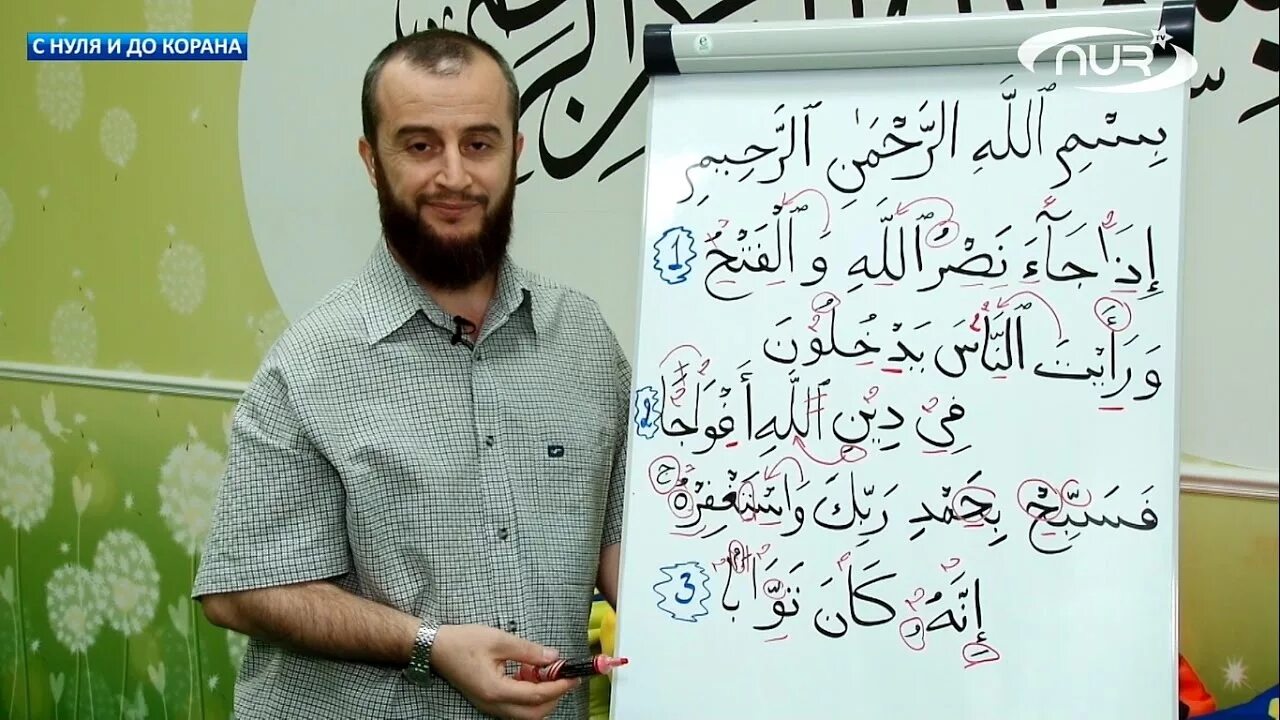 С НУЛЯ И ДО КОРАНА
NUR TV
بِسْمِ ٱللَّهِ ٱلرَّحْمَٰنِ ٱلرَّحِيمِ
إِذَا جَآءَ نَصْرُ ٱللَّهِ وَٱلْفَتْحُ 1
وَرَأَيْتَ ٱلنَّاسَ يَدْخُلُونَ
فِي دِينِ ٱللَّهِ أَفْوَاجًا 2
فَسَبِّحْ بِحَمْدِ رَبِّكَ وَاسْتَغْفِرْهُ
إِنَّهُ كَانَ تَوَّابًا 3